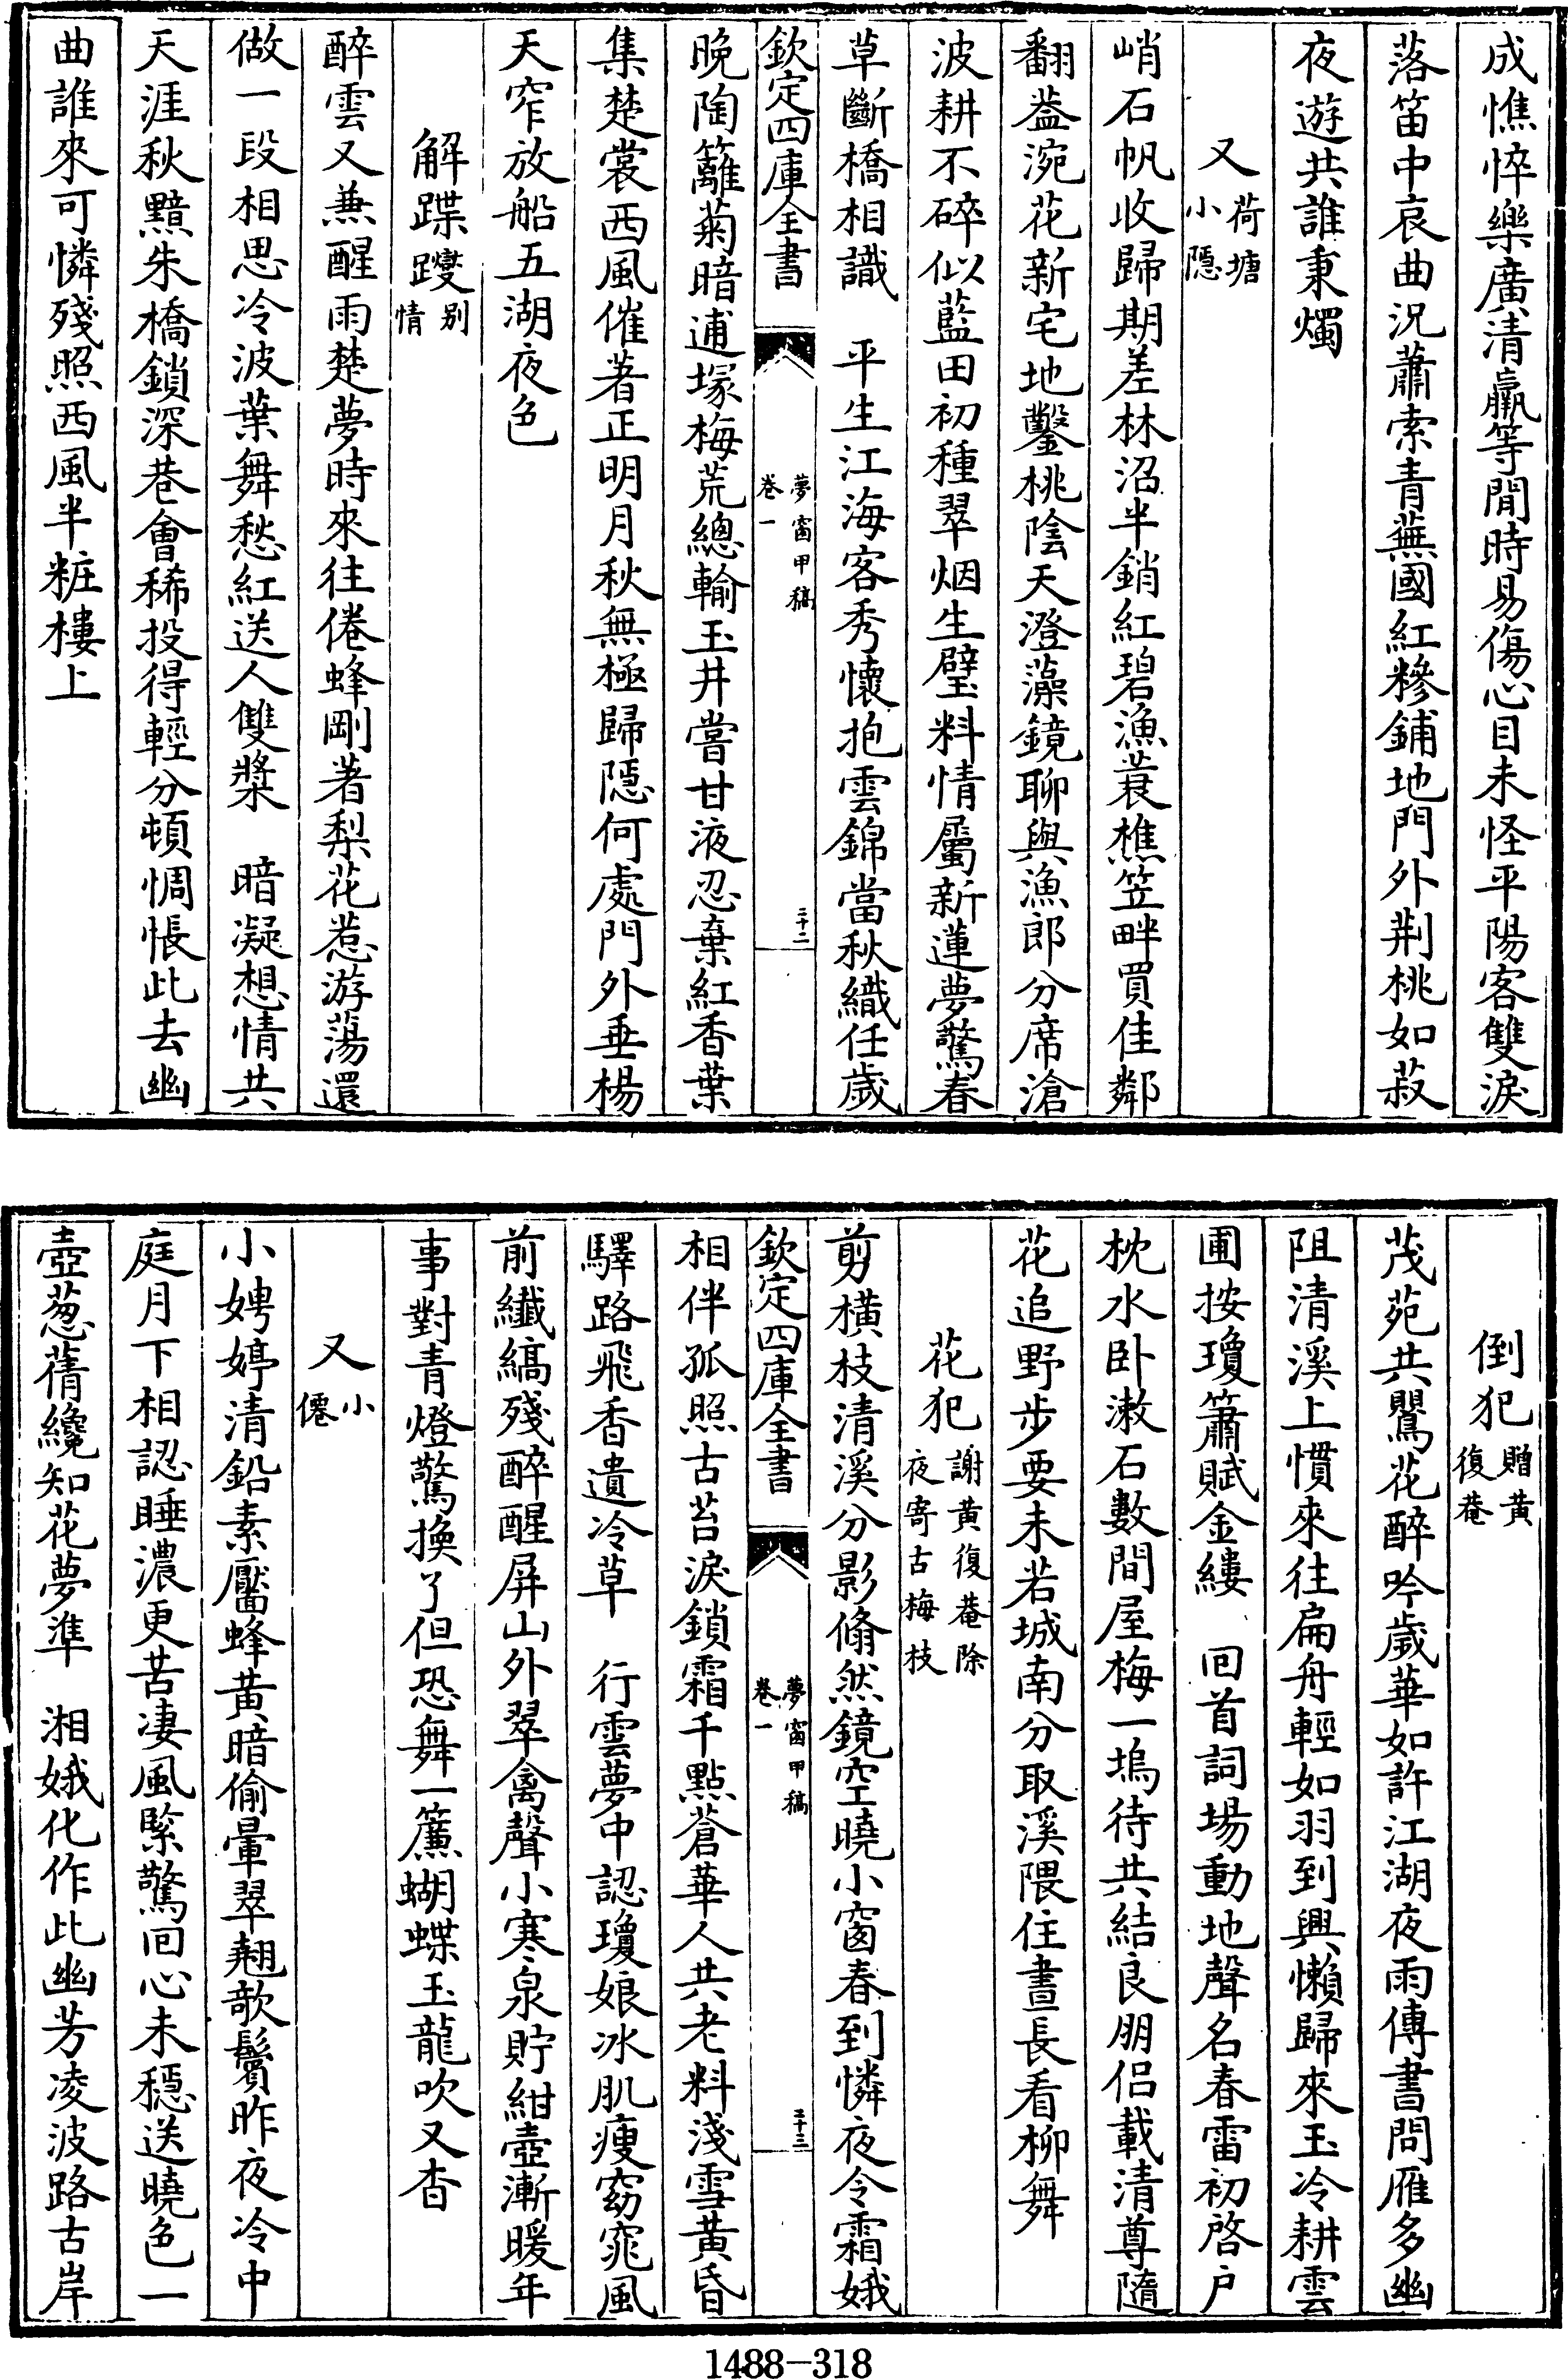 成憔悴樂廣清羸等閒時易傷心目未怪平陽客雙淚
落笛中哀曲況蕭索青蕪國紅糝鋪地門外荆桃如菽
夜遊共誰秉燭
又荷塘小隱
峭石帆收歸期差林沼半銷紅碧漁蓑樵笠畔買佳鄰
翻葢浣花新宅地鑿桃陰天澄藻鏡聊與漁郎分席滄
波耕不碎似藍田初種翠烟生璧料情屬新蓮夢驚春
草斷橋相識　平生江海客秀懷抱雲錦當秋織任歲
欽定四庫全書　夢窗甲稿卷一　三十二
晚陶籬菊暗逋塚梅荒總輸玉井嘗甘液忍棄紅香葉
集楚裳西風催著正明月秋無極歸隱何處門外垂楊
天窄放船五湖夜色
解蹀躞別情
醉雲又兼醒雨楚夢時來往倦蜂剛著梨花惹游蕩還
做一段相思冷波葉舞愁紅送人雙槳　暗凝想情共
天涯秋黯朱橋鎖深巷會稀投得輕分頓惆悵此去幽
曲誰來可憐殘照西風半粧樓上
倒犯贈黄復菴
茂苑共鶯花醉吟歲華如許江湖夜雨傳書問雁多幽
阻清溪上慣來往扁舟輕如羽到興懶歸來玉冷耕雲
圃按瓊簫賦金縷　回首詞場動地聲名春雷初啓户
枕水卧漱石數間屋梅一塢待共結良朋侣載清尊隨
花追野步要未若城南分取溪隈住晝長看柳舞
花犯謝黄復菴除夜寄古梅枝
剪橫枝清溪分影翛然鏡空曉小窗春到憐夜令霜娥
欽定四庫全書　夢窗甲稿卷一　三十三
相伴孤照古苔淚鎖霜千點蒼華人共老料淺雪黄昏
驛路飛香遺冷草　行雲夢中認瓊娘冰肌瘦窈窕風
前纖縞殘醉醒屏山外翠禽聲小寒泉貯紺壺漸暖年
事對青燈驚換了但恐舞一簾蝴蝶玉龍吹又杳
又小僊
小娉婷清鉛素靨蜂黄暗偷暈翠翹欹鬢昨夜冷中
庭月下相認睡濃更苦凄風緊驚回心未穩送曉色一
壺葱蒨纔知花夢準　湘娥化作此幽芳凌波路古岸
1488—318